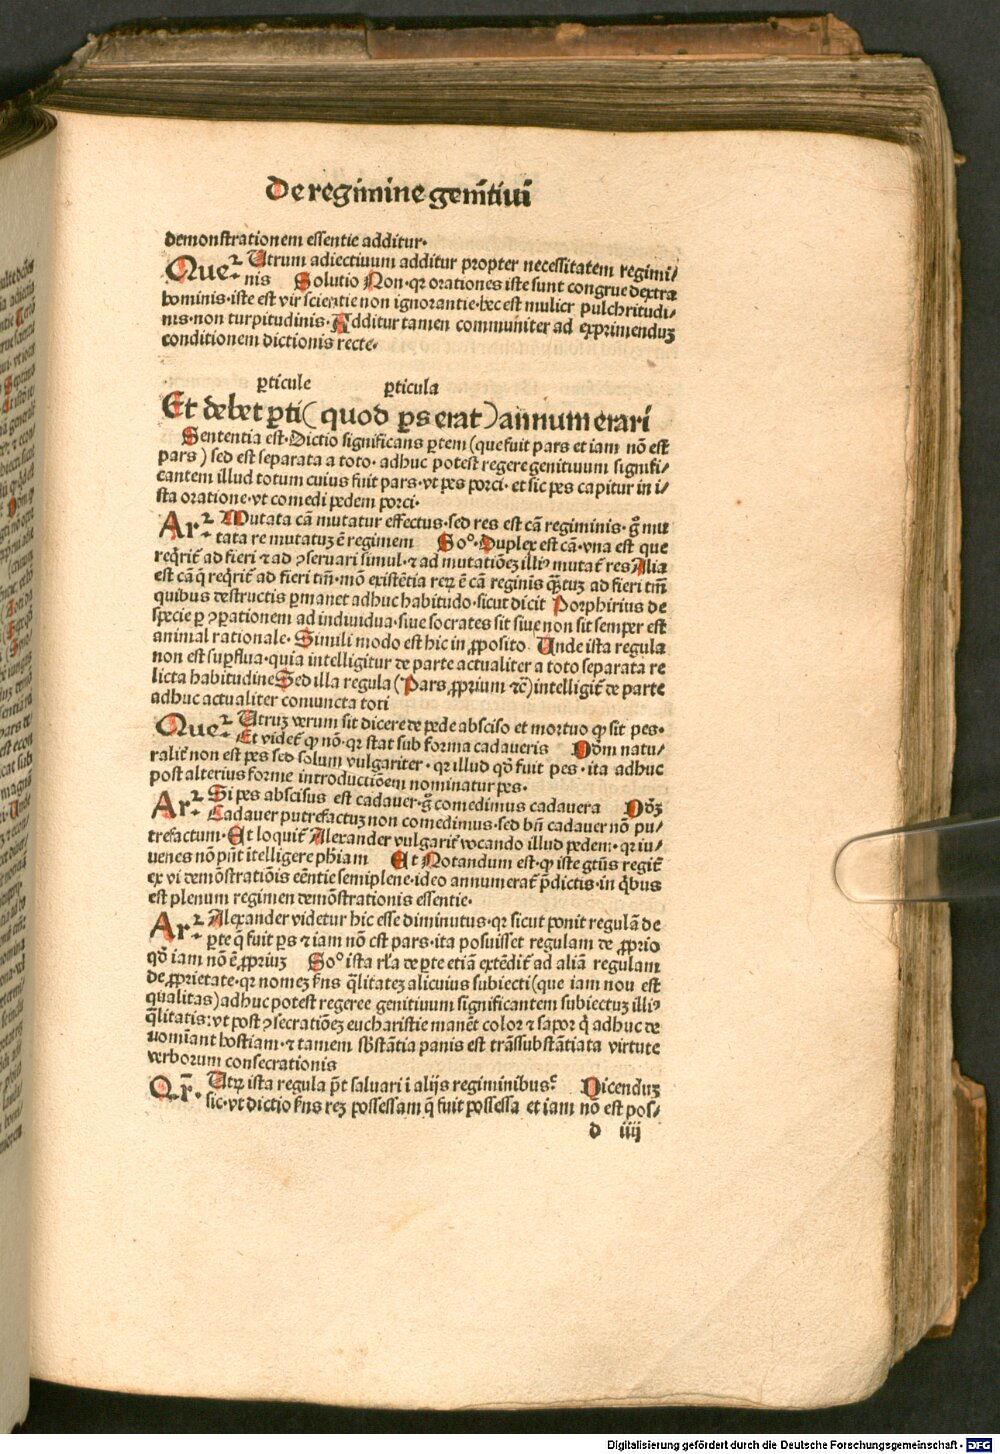 De regimine genitiui
demonstrationem essentie additur.
Queꝛ. Utrum adiectiuum additur propter necessitatem regimi/
nis Solutio Non. qꝛ orationes iste sunt congrue dextra
hominis. iste est vir scientie non ignorantie. hec est mulier pulchritudi/
nis. non turpitudinis. Additur tamen communiter ad exprimenduꝫ
conditionem dictionis recte.
ꝑticule ꝑticula
Et debet ꝑti (quod ꝑs erat) annumerari
Sententia est. Dictio significans ꝑtem (que fuit pars et iam nō est
pars) sed est separata a toto. adhuc potest regere genitiuum signifi/
cantem illud totum cuius fuit pars. vt pes porci. et sic pes capitur in i/
sta oratione. vt comedi pedem porci.
Arꝛ. Mutata cā mutatur effectus. sed res est cā regiminis. g̊ mu
tata re mutatuꝫ ē regimem Soº. Duplex est cā. vna est que
reqͥrit̄ ad fieri ⁊ ad ꝯseruari simul. ⁊ ad mutatiōeꝫ illiꝰ mutat̄ res Alia
est cā q̄ reqͥrit̄ ad fieri tm̄. mō existētia reꝝ ē cā reginis qᷓtuꝫ ad fieri tm̄
quibus destructis ꝑmanet adhuc habitudo. sicut dicit Porphirius de
specie ꝑ ꝯꝑationem ad indiuidua. siue socrates sit siue non sit semper est
animal rationale. Simili modo est hic in ꝓposito. Unde ista regula
non est suꝑflua. quia intelligitur de parte actualiter a toto separata re
licta habitudine Sed illa regula (Pars ꝓprium ⁊c̄) intelligit̄ de parte
adhuc actualiter coniuncta toti
Queꝛ. Utruꝫ verum sit dicere de pede absciso et mortuo ꝙ sit pes.
Et videt̄ ꝙ nō. qꝛ stat sub forma cadaueris Dd̄m natu/
ralit̄ non est pes sed solum vulgariter. qꝛ illud qd̄ fuit pes. ita adhuc
post alterius forme introductiōem nominatur pes.
Arꝛ. Si pes abscisus est cadauer. g̊ comedimus cadauera Dd̄ꝫ
Cadauer putrefactuꝫ non comedimus. sed bn̄ cadauer nō pu/
trefactum. Et loquit̄ Alexander vulgarit̄ vocando illud pedem. qꝛ iu/
uenes nō pn̄t ītelligere ph̄iam Et Notandum est. ꝙ iste gt̄ūs regit̄
ex vi demōstratiōis eēntie semiplene. ideo annumerat̄ p̄dictis. in qͥbus
est plenum regimen demōstrationis essentie.
Arꝛ. Alexander videtur hic esse diminutus. qꝛ sicut ponit regulā de
ꝑte q̄ fuit ꝑs ⁊ iam nō est pars. ita posuisset regulam de ꝓprio
qd̄ iam nō ē ꝓpriuꝫ Soº ista rl̄a de ꝑte etiā extēdit̄ ad aliā regulam
de ꝓprietate. qꝛ nomeꝫ ẜn̄s q̄litateꝫ alicuius subiecti (que iam nou est
qualitas) adhuc potest regeree genitiuum significantem subiectuꝫ illiꝰ
q̄litatis: vt post ꝯsecratiōeꝫ eucharistie manēt color ⁊ sapor qͥ adhuc de
nomīant hostiam. ⁊ tamem sb̄stātia panis est trāssubstātiata virtute
verborum consecrationis
Qr̄. Utꝝ ista regula pōt saluari ī alijs regiminibus? Dicenduꝫ
sic. vt dictio ẜn̄s reꝫ possessam q̄ fuit possessa et iam nō est pos/
d iiij
Digitalisierung gefördert durch die Deutsche Forschungsgemeinschaft - DFG